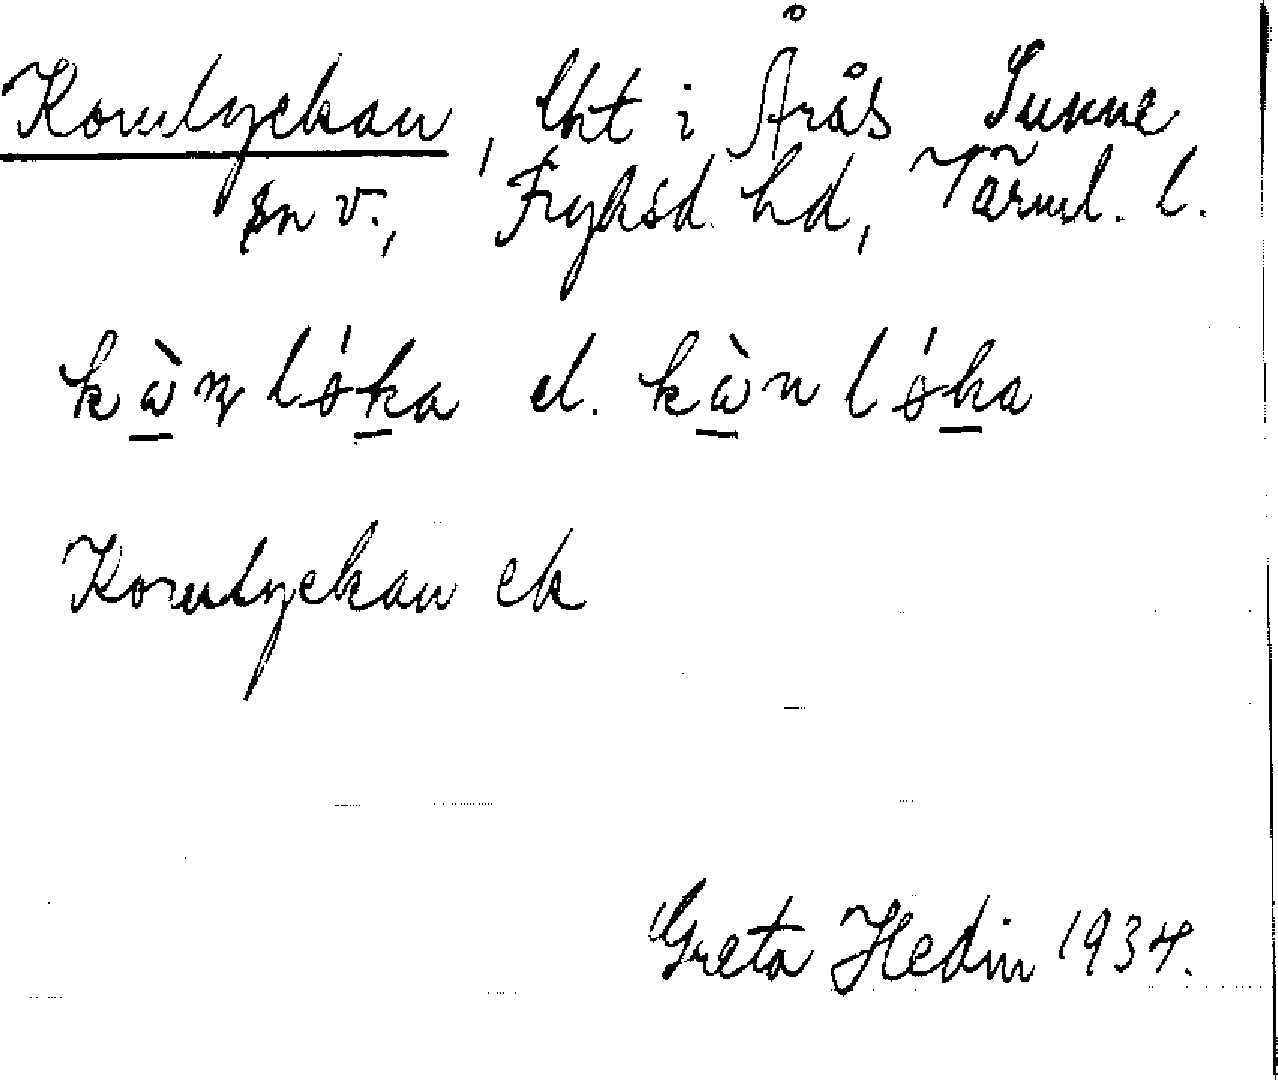 Kornlyckan, lht i Årås Sunne
sn v., Fryksd. hd, Värml. l.
kὼɳ lǿka el. kὼn lǿka
Kornlyckan ek
Greta Hedin 1934.